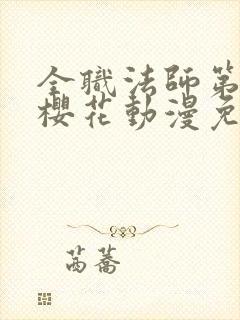 全職法師第
櫻花動漫免
芮蕎